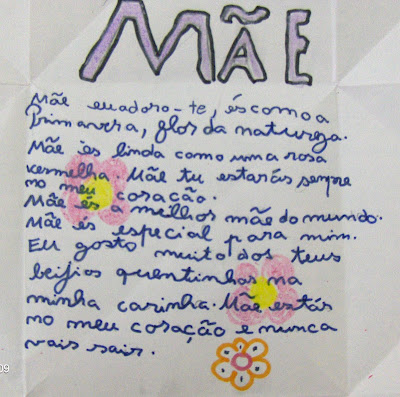 MÃE
Mãe eu adoro-te, és como a
Primavera, flor da natureza.
Mãe és linda como uma rosa
vermelha. Mãe tu estarás sempre
no meu coração.
Mãe és a milhos mãe do mundo.
Mãe és especial para mim.
Eu gosto muito dos teus
beijios quentinhos na
minha carinha. Mãe estás
no meu coração e nunca
vais sair.
09